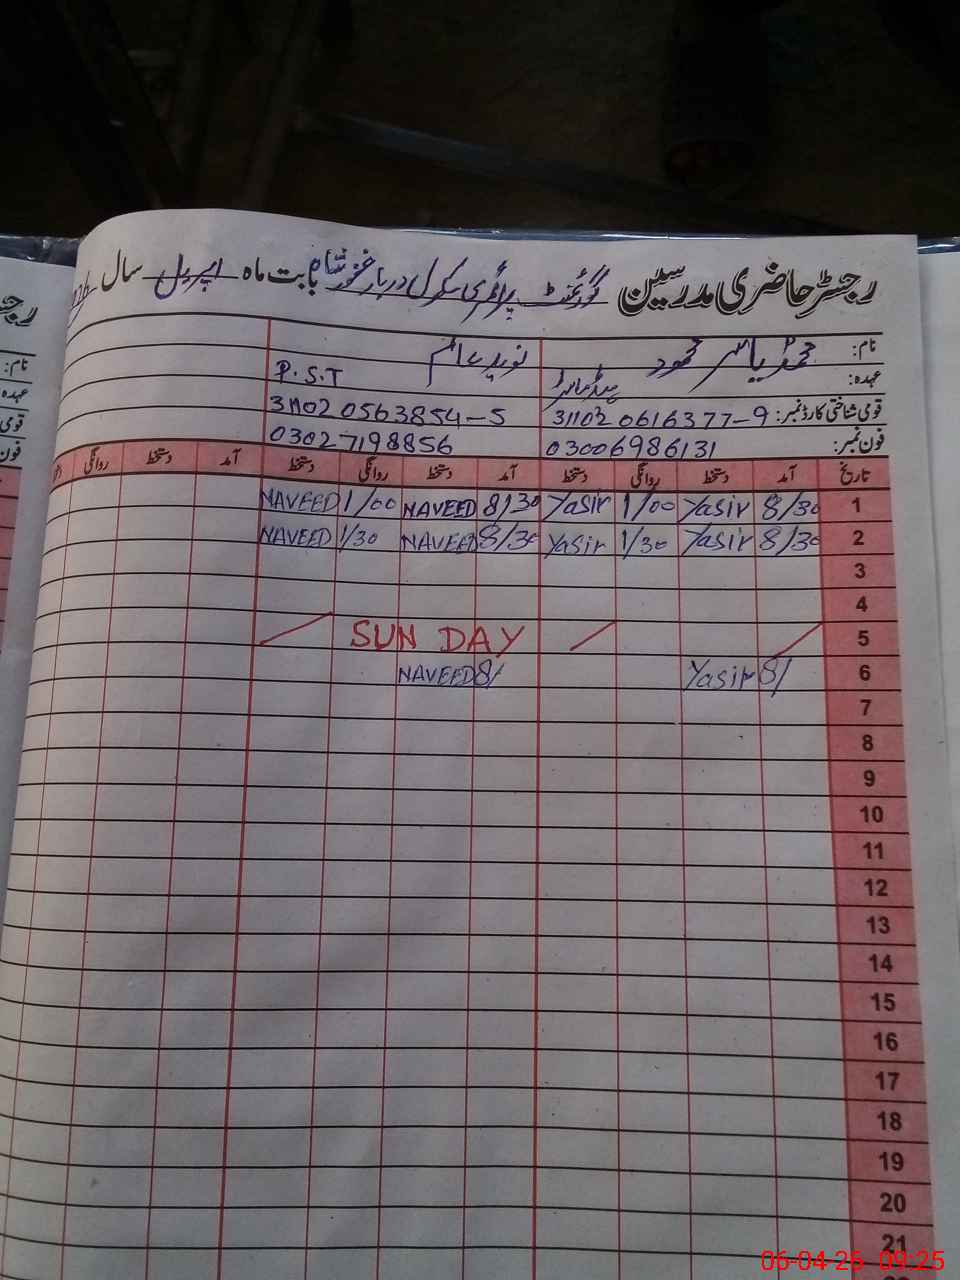 رجسٹر حاضری مدرسین گورنمنٹ پرائمری سکول دربار غفور شاہ بابت ماہ اپریل سال
نام: محمد یاسر محمود نوید عالم
عہدہ: ہیڈ ماسٹر P.S.T
قومی شناختی کارڈ نمبر: 31102 0616377-9 31102 0563854-5
فون نمبر: 03006986131 03027198856
تاریخ آمد دستخط روانگی دستخط آمد دستخط روانگی دستخط آمد دستخط روانگی
1 8/30 Yasir 1/00 Yasir 8/30 NAVEED 1/00 NAVEED
2 8/30 Yasir 1/30 Yasir 8/30 NAVEED 1/30 NAVEED
3
4
5 SUNDAY
6 8/ Yasir 8/ NAVEED
7
8
9
10
11
12
13
14
15
16
17
18
19
20
21
06-04-25 09:25